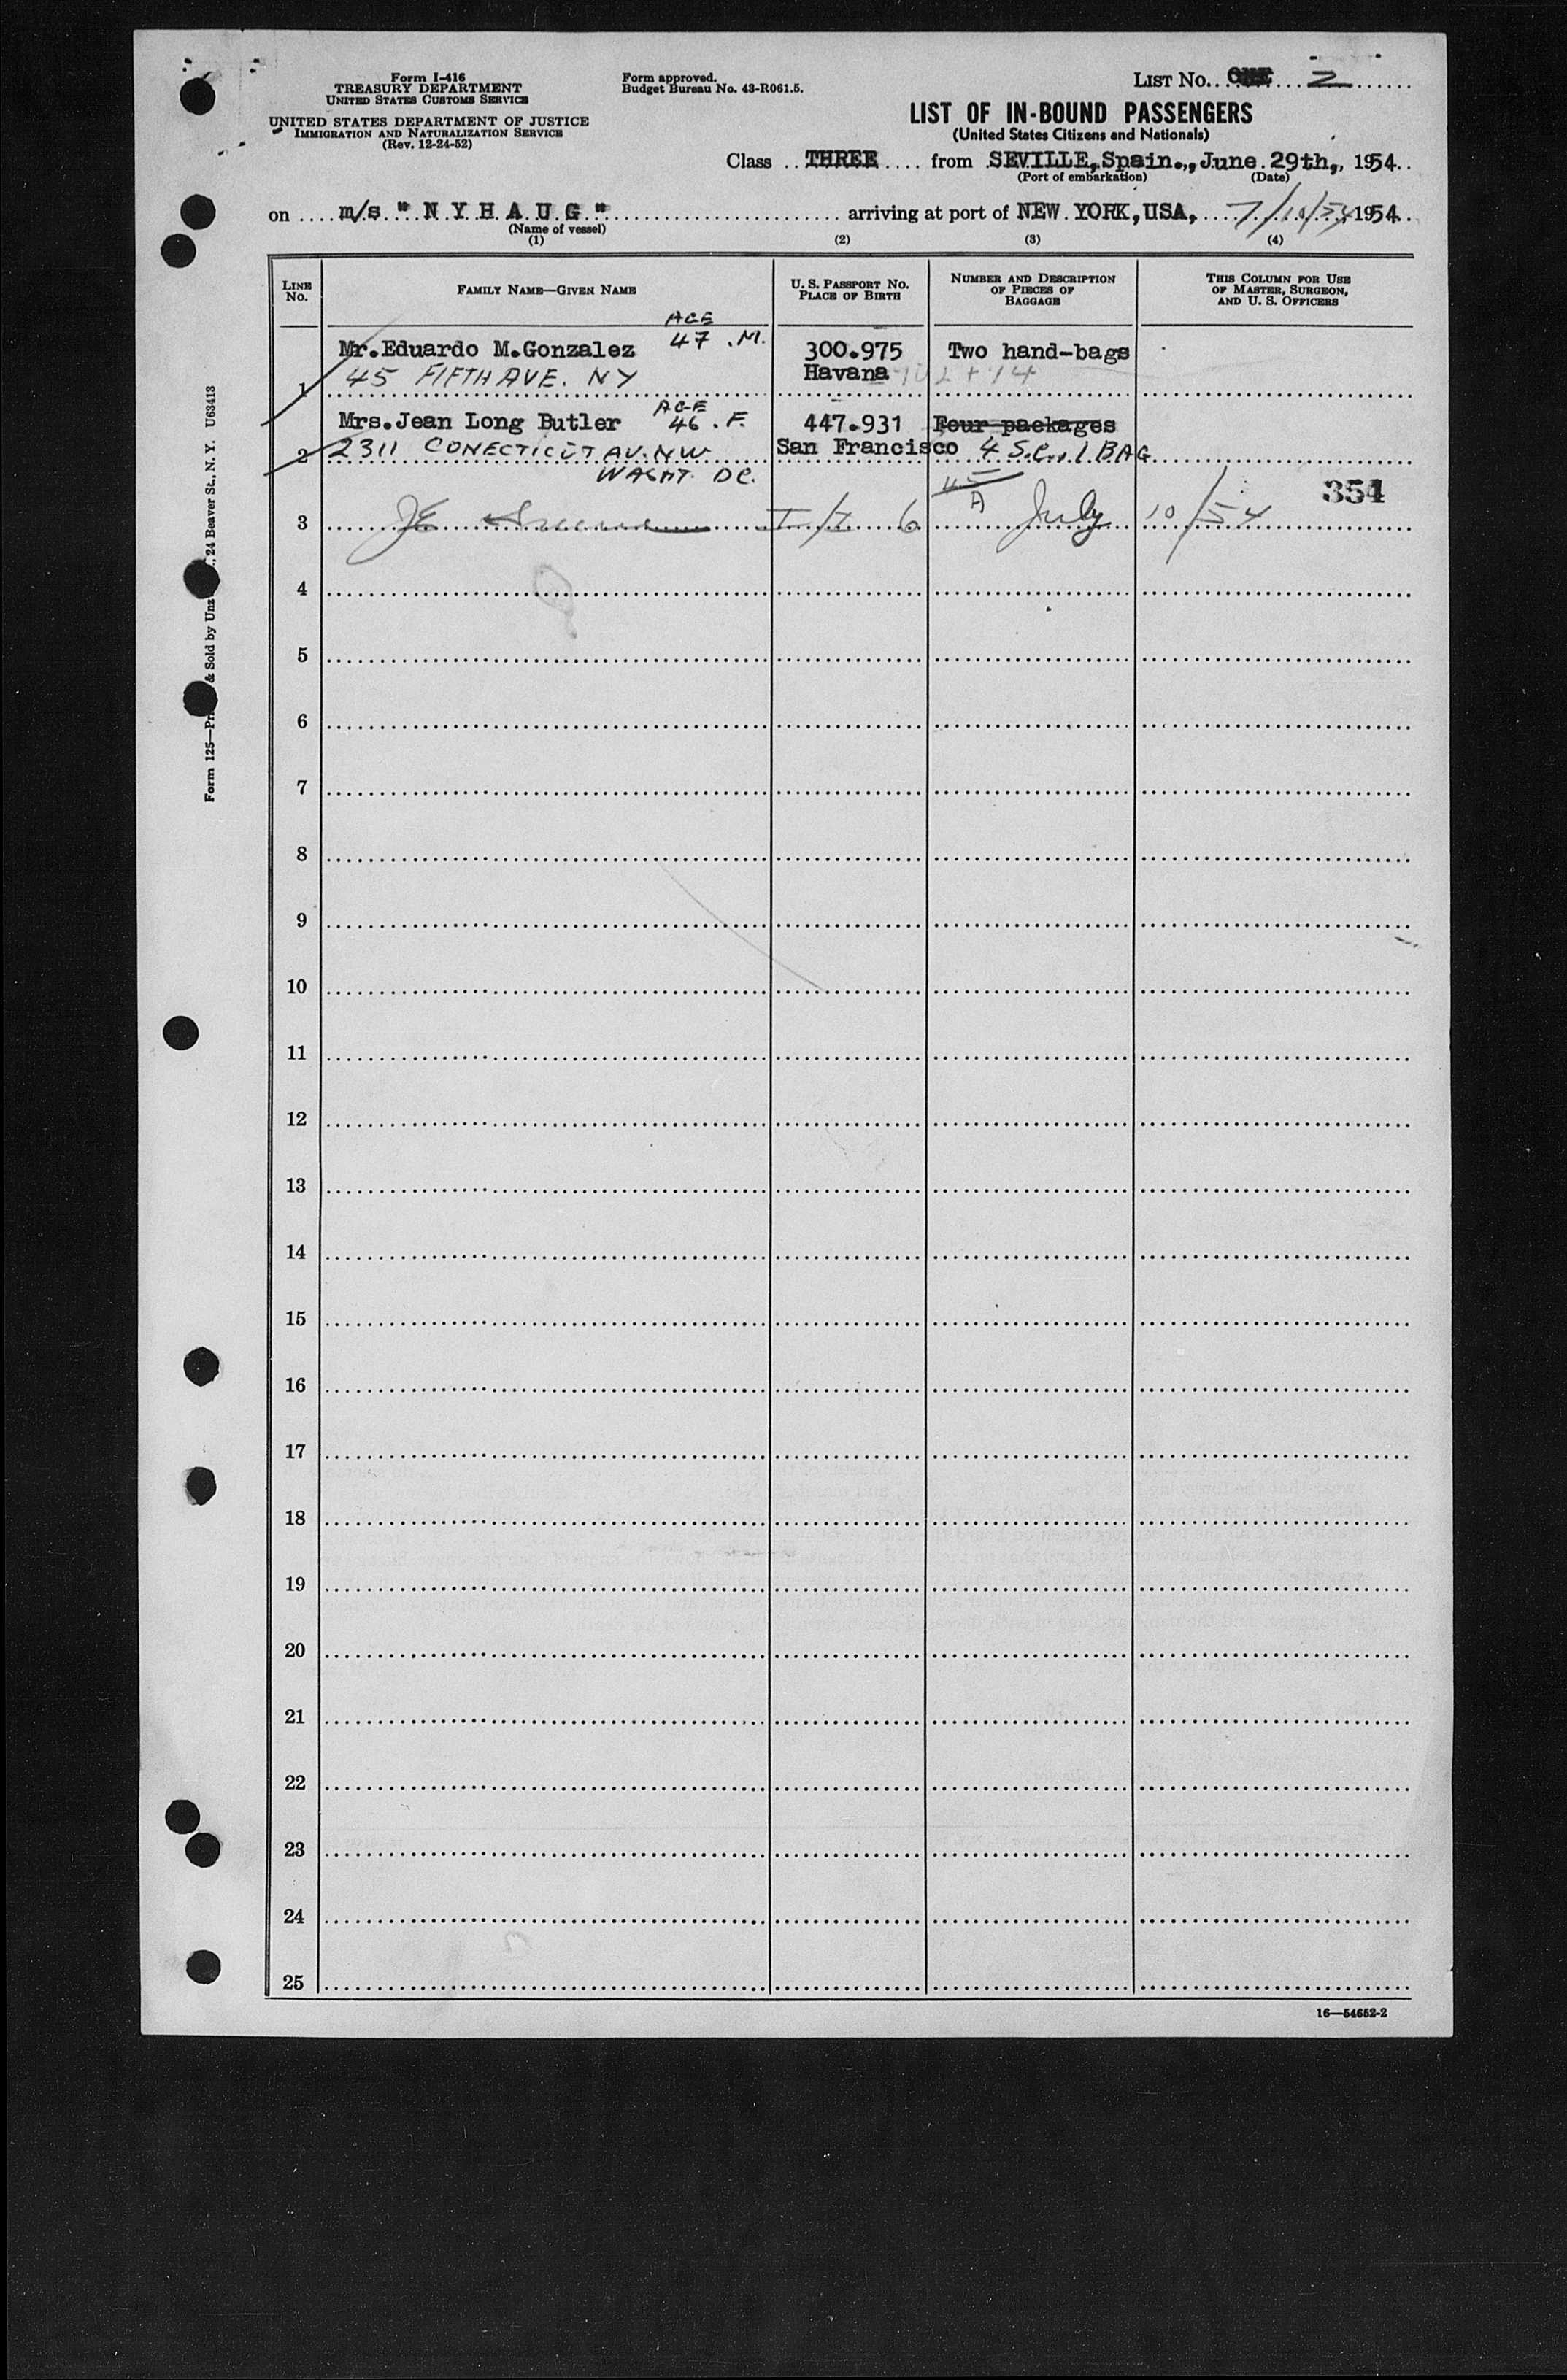 Form I-416
TREASURY DEPARTMENT
UNITED STATES CUSTOMS SERVICE
UNITED STATES DEPARTMENT OF JUSTICE
IMMIGRATION AND NATURALIZATION SERVICE
(Rev. 12-24-52)
Form approved.
Budget Bureau No. 43-R061.5.
LIST No. ONE 2
LIST OF IN-BOUND PASSENGERS
(United States Citizens and Nationals)
Class THREE from SEVILLE, Spain., June 29th, 1954
(Port of embarkation) (Date)
on m/s "NYHAUG" arriving at port of NEW YORK, USA, 7/10/54, 1954
(Name of vessel)
(1) (2) (3) (4)
LINE No.
FAMILY NAME—GIVEN NAME
U. S. PASSPORT NO.
PLACE OF BIRTH
NUMBER AND DESCRIPTION OF PIECES OF BAGGAGE
THIS COLUMN FOR USE OF MASTER, SURGEON, AND U. S. OFFICERS
AGE
Mr.Eduardo M.Gonzalez 47 . M. 300.975 Two hand-bags
1 45 FIFTH AVE. NY Havana
AGE
Mrs.Jean Long Butler 46 . F. 447.931 Four packages
2 2311 CONECTICUT AV. N.W San Francisco 4 S.C., 1 BAG
WASHT. DC.
354
3 July 10/54
4
5
6
7
8
9
10
11
12
13
14
15
16
17
18
19
20
21
22
23
24
25
16—54652-2
Form 125— & Sold by Unz , 24 Beaver St., N. Y. U63413